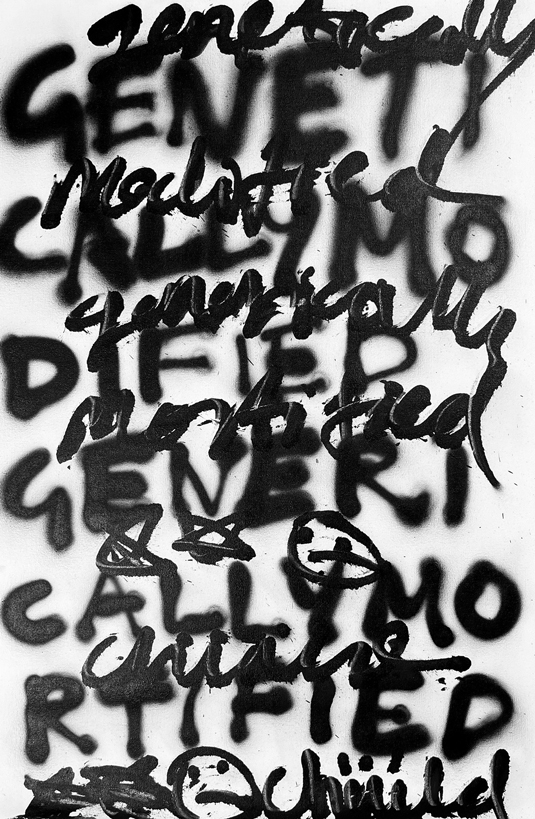 genetically
GENETI
modified
CALLYMO
generically
DIFIED
mortified
GENERI
CALLYMO
RTIFIED